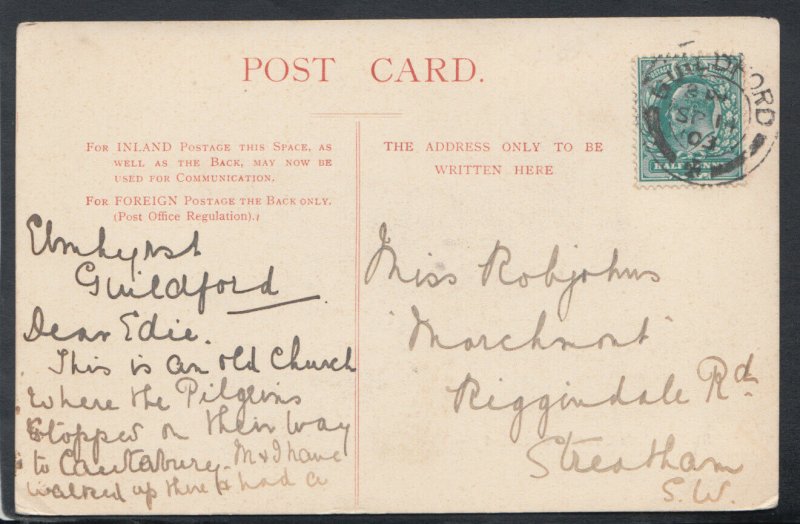 POST CARD.
FOR INLAND POSTAGE THIS SPACE, AS
WELL AS THE BACK, MAY NOW BE
USED FOR COMMUNICATION.
FOR FOREIGN POSTAGE THE BACK ONLY.
(Post Office Regulation).
THE ADDRESS ONLY TO BE
WRITTEN HERE
GUILDFORD
SP 1
03
HALFPENNY
Elmhyrst
Guildford
Dear Edie.
This is an old Church
where the Pilgrims
stopped on their way
to Cantabury. M & I have
walked up there & had a
Miss Robjohns
"Marchmont"
Riggindale Rd
Streatham
S.W.